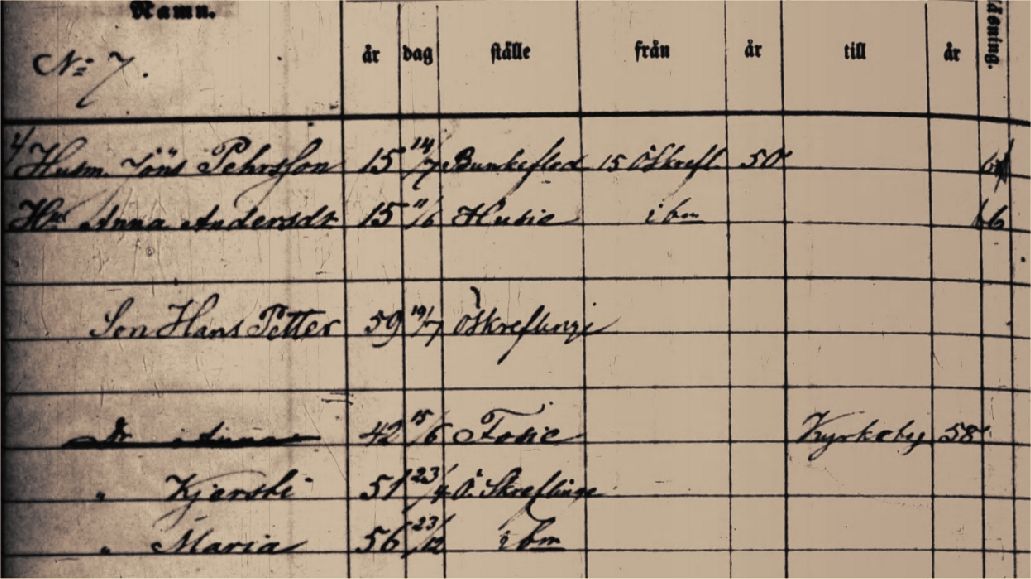 Namn. år dag ställe från år till år
No 7.
4/ Husm. Jöns Pehrsson 15 14/7 Bunkeflod 15 Ö Skrefl. 50
Hu Anna Andersdr 15 11/6 Husie ibm 66
Son Hans Petter 59 19/7 Ö Skreflinge
Dr Anna 42 15/6 Fosie Kyrkoby 58
" Kjersti 51 23/4 Ö. Skreflinge
" Maria 56 23/12 ibm